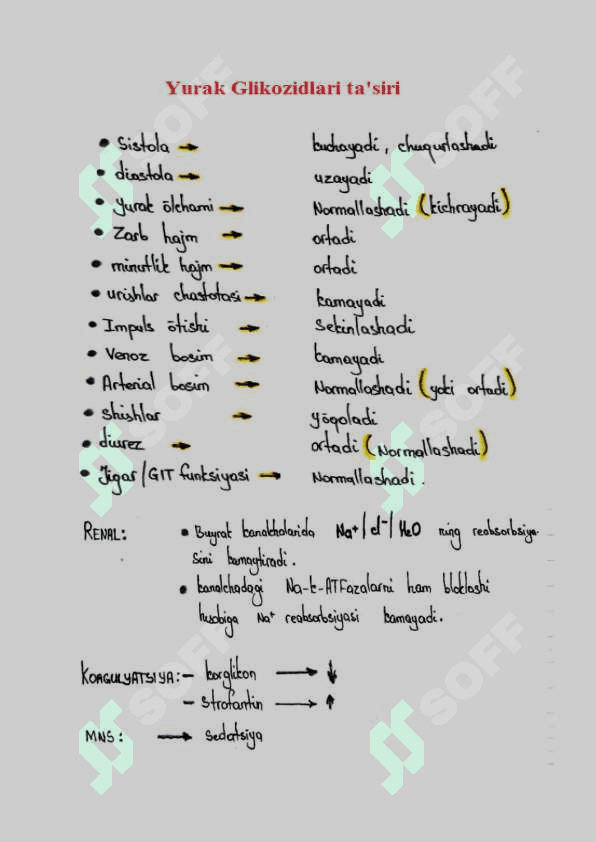 Yurak Glikozidlari ta'siri
• Sistola → kuchayadi, chuqurlashadi
• diastola → uzayadi
• Yurak ölchami → Normallashadi (kichrayadi)
• Zarb hajm → ortadi
• minutlik hajm → ortadi
• urishlar chastotasi → kamayadi
• Impuls ötishi → Sekinlashadi
• Venoz bosim → kamayadi
• Arterial bosim → Normallashadi (yoki ortadi)
• Shishlar → yöqoladi
• diurez → ortadi (Normallashadi)
• Jigar/GIT funksiyasi → Normallashadi.
RENAL: • Buyrak kanalchalarida Na+/cl-/H2O ning reabsorbsiya-
sini kamaytiradi.
• kanalchadagi Na-k-ATFazalarni ham bloklashi
hisobiga Na+ reabsorbsiyasi kamayadi.
KOAGULYATSIYA: - korglikon → ↓
- Strofantin → ↑
MNS: → Sedatsiya
SOFF
SOFF
SOFF
SOFF
SOFF
SOFF